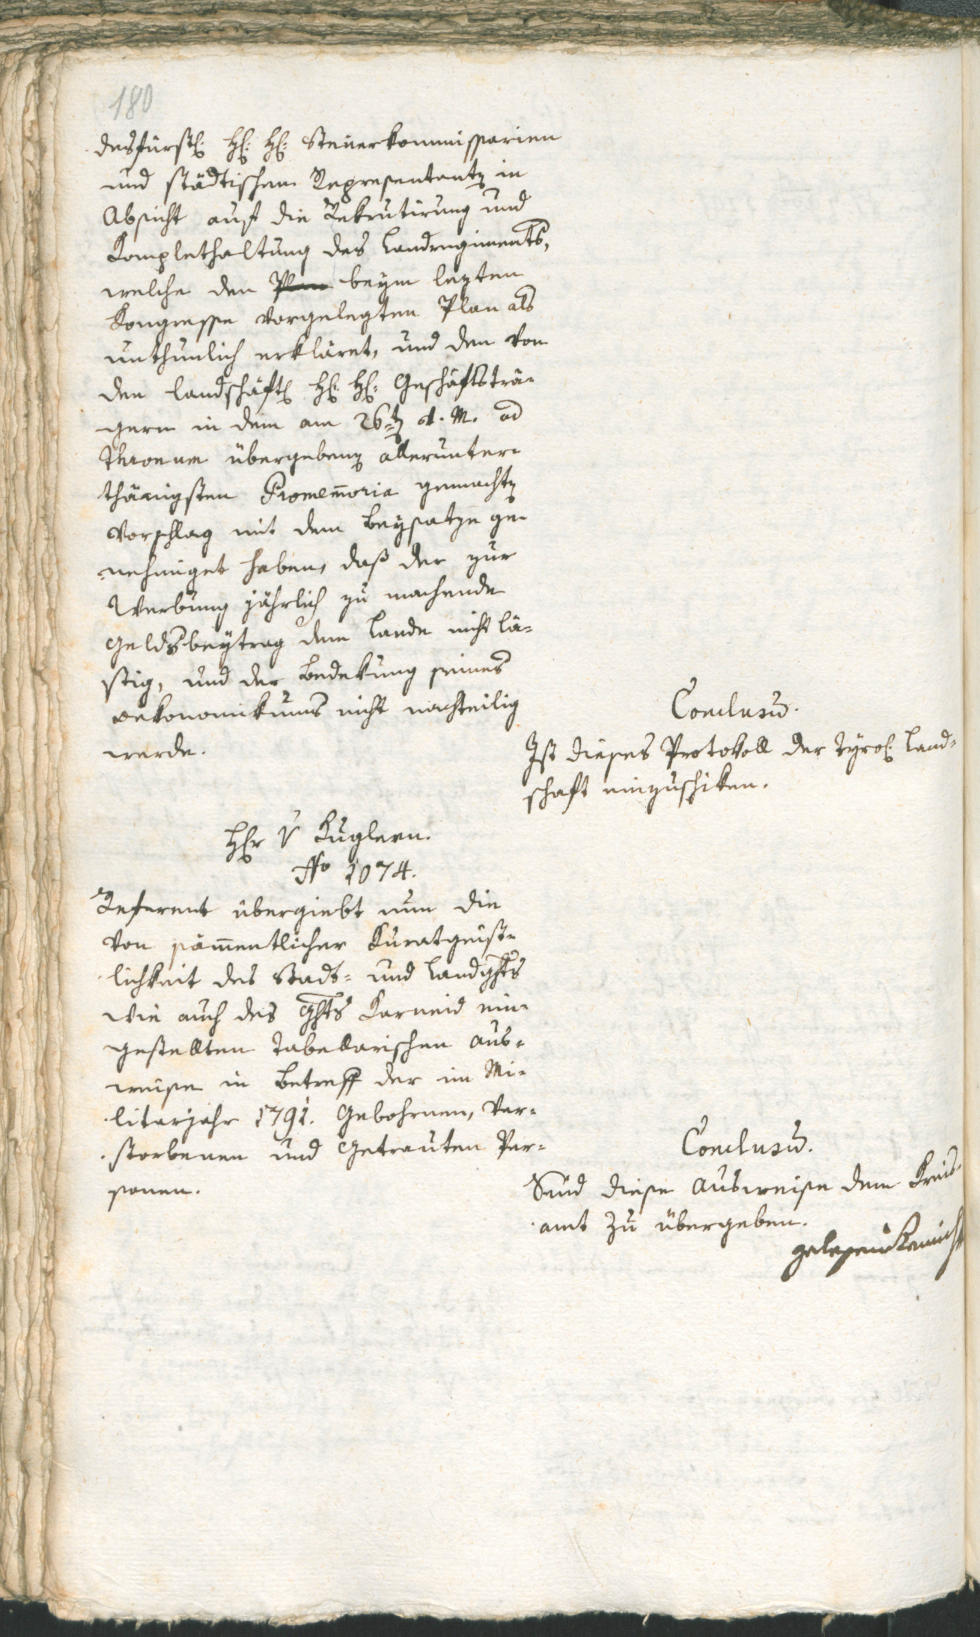 180
desfürstl: H: H: Steuerkommissarien
und städtischen Representanten in
Absicht auf die Rekrutirung und
Komplethaltung des Landregiments,
welche den Plan beym lezten
Kongresse vorgelegten Plan als
unthunlich erkläret, und den von
den landschäftl: H: H: Geschäftsträ-
gern in dem am 26ten d. M. ad
Thronum übergebenen allerunter-
thänigsten Promemoria gemachten
Vorschlag mit dem Beysatze ge-
nehmiget haben, daß der zur
Werbung jährlich zu machende
Geldsbeytrag dem Lande nicht lä-
stig, und der Bedekung seines
oekonomikums nicht nachteilig
werde.
Conclusum.
Ist dieses Protokoll der Tyrol: Land-
schaft einzuschiken.
Hr v Kuglern.
No 1074.
Referent übergiebt nun die
von sämentlicher Kuratgeist-
lichkeit des Stadt- und Landghts
wie auch des Ghts Karneid ein-
gestellten tabellarischen Aus-
weise in Betreff der im Mi-
litarjahr 1791. Gebohrnen, Ver-
storbenen und Getrauten Per-
sonen.
Conclusum.
Sind diese Ausweise dem Kreis-
amt zu übergeben.